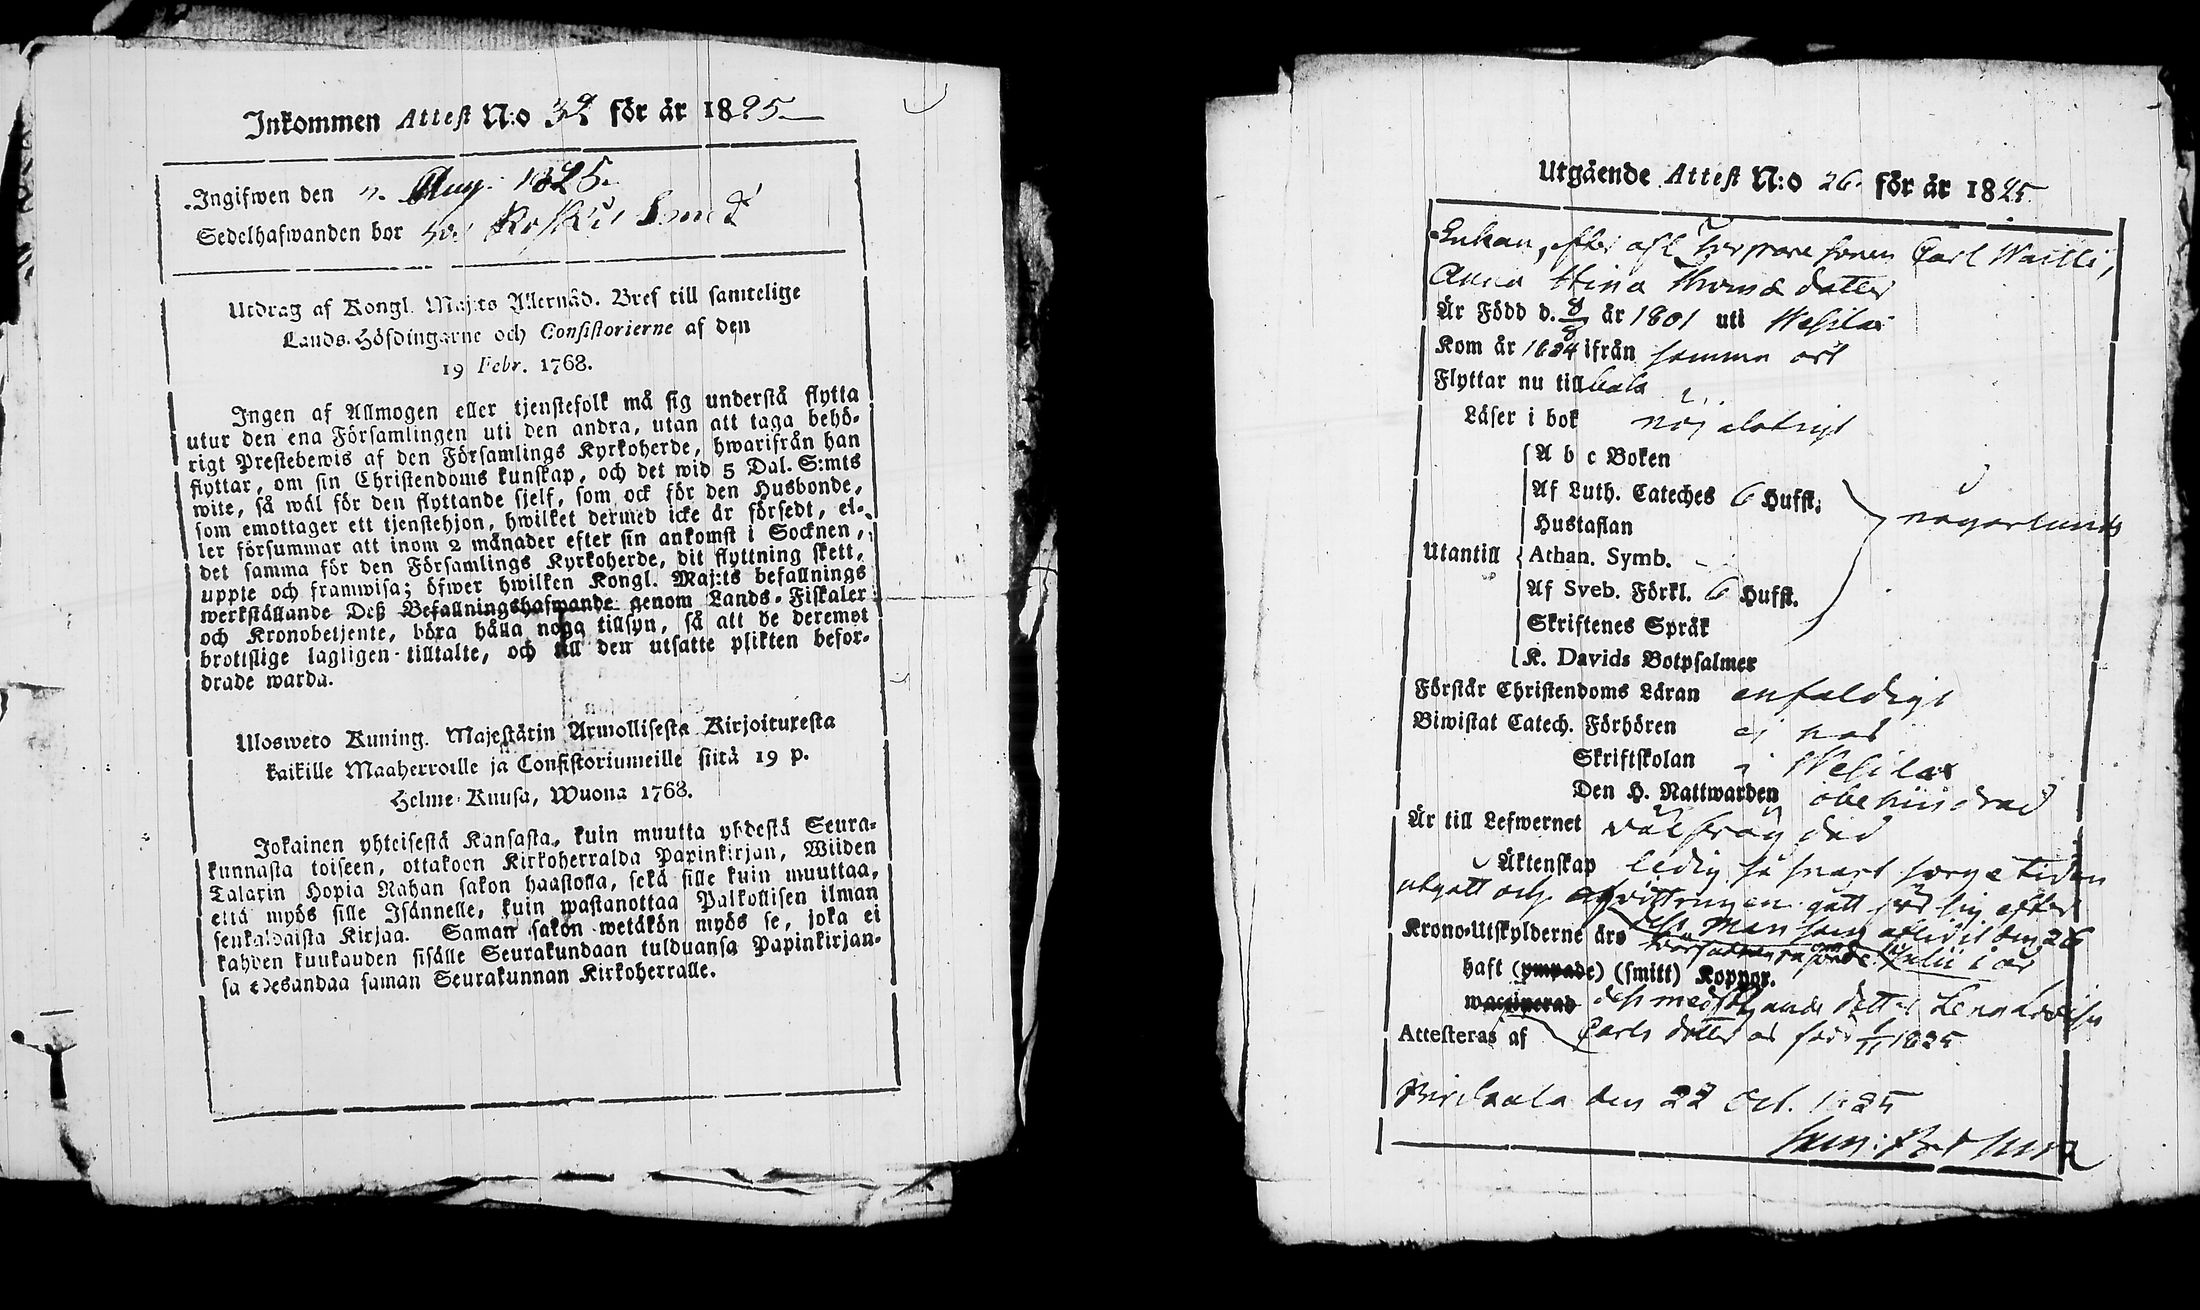 Inkommen Attest N:o 32 för år 1825
Ingifwen den Aug. 1825.
Sedelhafwanden bor hos
Utdrag af Kongl. Maj:ts Allernåd. Bref till samtelige
Lands-Höfdingarne och Consistorierne af den
19 Febr. 1768.
Ingen af Allmogen eller tjenstefolk må sig understå flytta
utur den ena Församlingen uti den andra, utan att taga behö-
rigt Prestebewis af den Församlings Kyrkoherde, hwarifrån han
flyttar, om sin Christendoms kunskap, och det wid 5 Dal. S:mts
wite, så wäl för den flyttande sjelf, som ock för den Husbonde,
som emottager ett tjenstehjon, hwilket dermed icke är försedt, el-
ler försummar att inom 2 månader efter sin ankomst i Socknen,
det samma för den Församlings Kyrkoherde, dit flyttning skett,
uppte och framwisa; öfwer hwilken Kongl. Maj:ts befallnings
werkställande Deß Befallningshafwande genom Lands-Fiskaler
och Kronobetjente, böra hålla noga tillsyn, så att de deremot
brottslige lagligen tilltalte, och till den utsatte plikten befor-
drade warda.
Ulosweto Kuning. Majestätin Armollisesta Kirjoituxesta
kaikille Maaherroille ja Consistoriumeille siitä 19 p.
Helme-Kuusa, Wuona 1768.
Jokainen yhteisestä Kansasta, kuin muutta yhdestä Seura-
kunnasta toiseen, ottakoon Kirkoherralda Papinkirjan, Wiiden
Talarin Hopia Rahan sakon haastolla, sekä sille kuin muuttaa,
että myös sille Isännelle, kuin wastanottaa Palkollisen ilman
senkaldaista Kirjaa. Saman sakon wetäkön myös se, joka ei
kahden kuukauden sisälle Seurakundaan tulduansa Papinkirjan-
sa edesandaa saman Seurakunnan Kirkoherralle.
Utgående Attest N:o 26. för år 1825
Enkan, efter afl. Carl Wailli,
Anna Stina Thomas dotter
Är Född d. 8/8 år 1801 uti Wesilax
Kom år 1824 ifrån samma ort
Flyttar nu tillbaka
Läser i bok nöjaktigt
A b c Boken
Af Luth. Cateches 6 Hufst.
Hustaflan någorlunda
Utantill Athan. Symb.
Af Sveb. Förkl. 6 Hufst.
Skriftenes Språk
K. Davids Botpsalmer
Förstår Christendoms Läran enfaldigt
Biwistat Catech. Förhören ej här
Skriftskolan i Wesilax
Den H. Nattwarden obehindrad
Är till Lefwernet välfrägdad
Äktenskap ledig så snart sorgetiden
utgått och afvittringen gått för sig efter
Krono-Utskylderne äro dess man som aflidit den 26
Julii i år
haft (ympade) (smitt) Koppor.
waccinerad dess medföljande dotter
Attesteras af Carls dotter är född 1825
Birkkala den 22 Oct. 1825